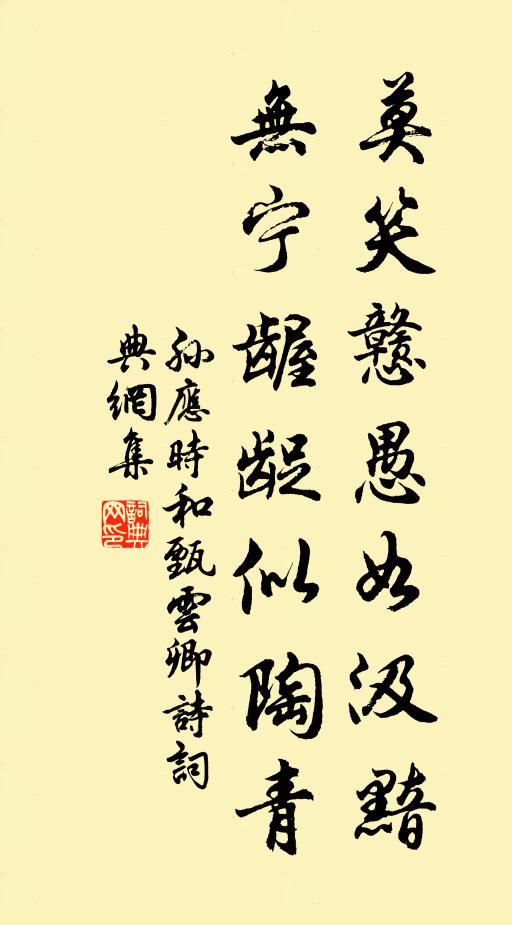 莫笑戇愚如汲黯
無宁齷齪似陶青
孙應時和甄雲卿詩詞
典網集
詞典
网印